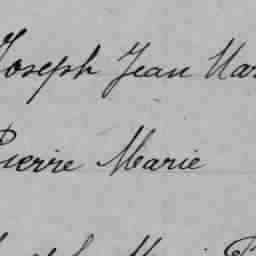 Joseph Jean Mar
Pierre Marie